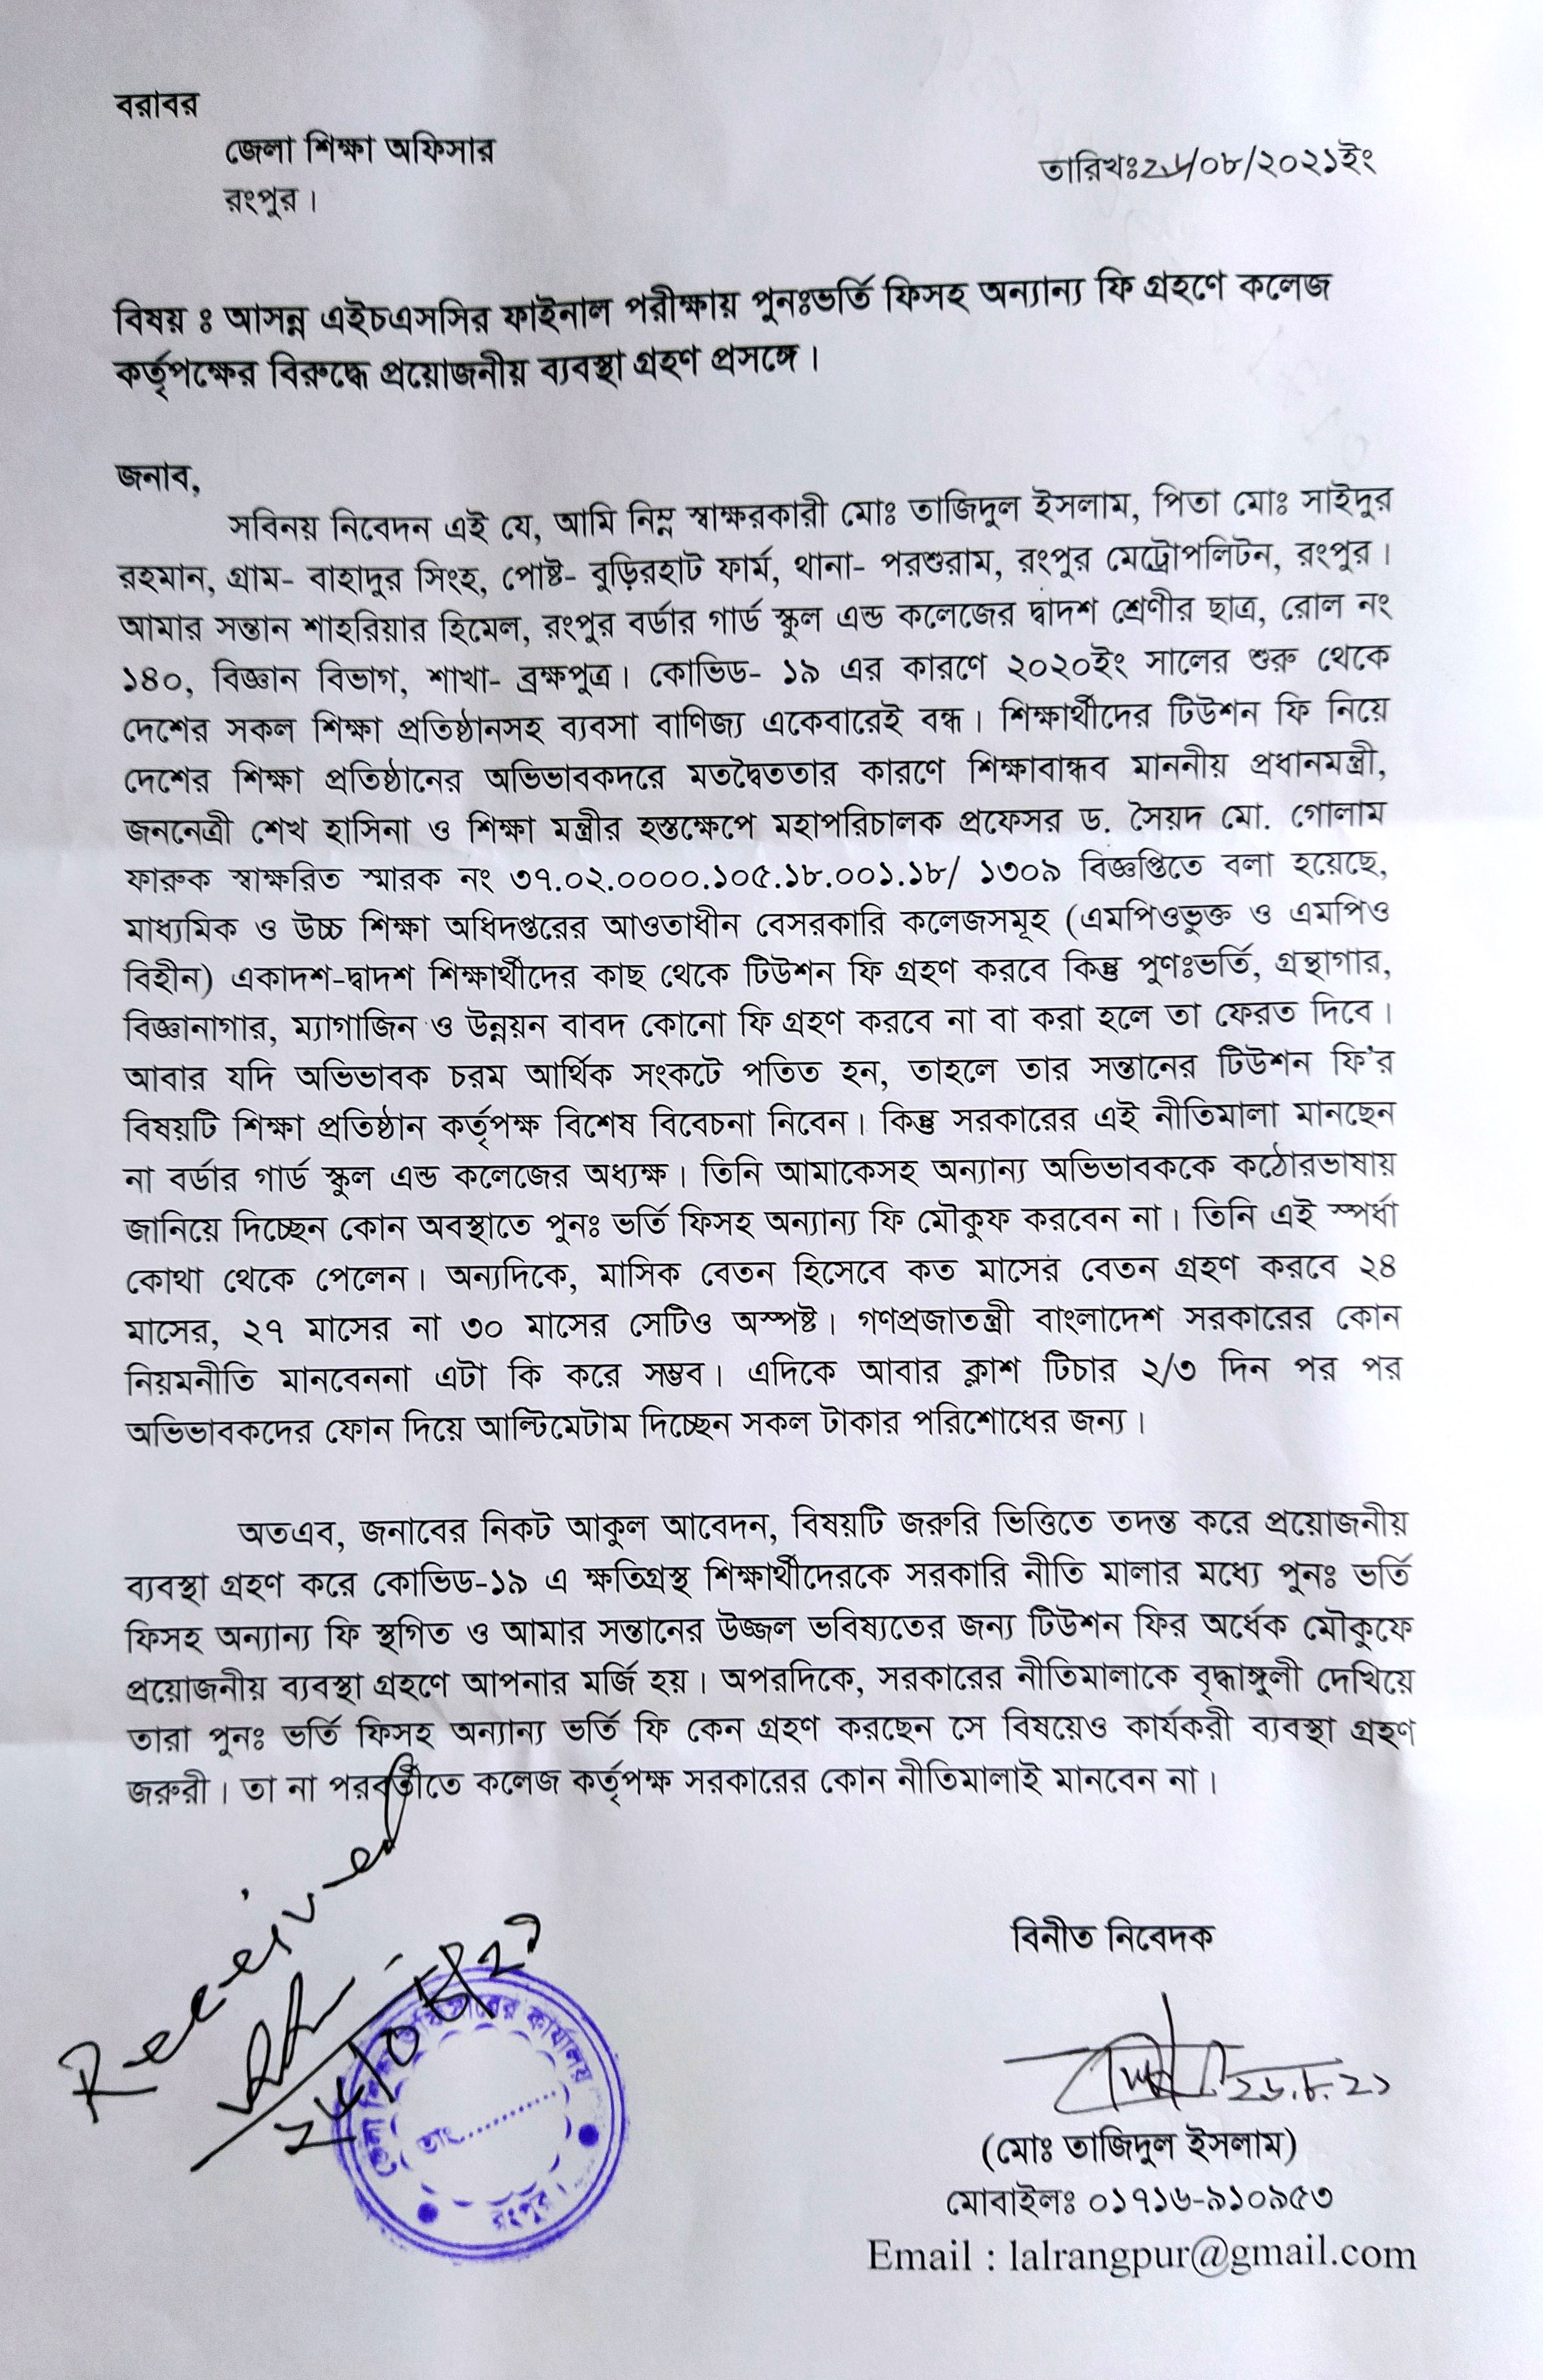 বরাবর
জেলা শিক্ষা অফিসার
রংপুর।
তারিখঃ২৬/০৮/২০২১ইং
বিষয় ঃ আসন্ন এইচএসসির ফাইনাল পরীক্ষায় পুনঃভর্তি ফিসহ অন্যান্য ফি গ্রহণে কলেজ
কর্তৃপক্ষের বিরুদ্ধে প্রয়োজনীয় ব্যবস্থা গ্রহণ প্রসঙ্গে।
জনাব,
সবিনয় নিবেদন এই যে, আমি নিম্ন স্বাক্ষরকারী মোঃ তাজিদুল ইসলাম, পিতা মোঃ সাইদুর
রহমান, গ্রাম- বাহাদুর সিংহ, পোষ্ট- বুড়িরহাট ফার্ম, থানা- পরশুরাম, রংপুর মেট্রোপলিটন, রংপুর।
আমার সন্তান শাহরিয়ার হিমেল, রংপুর বর্ডার গার্ড স্কুল এন্ড কলেজের দ্বাদশ শ্রেণীর ছাত্র, রোল নং
১৪০, বিজ্ঞান বিভাগ, শাখা- ব্রক্ষপুত্র। কোভিড- ১৯ এর কারণে ২০২০ইং সালের শুরু থেকে
দেশের সকল শিক্ষা প্রতিষ্ঠানসহ ব্যবসা বাণিজ্য একেবারেই বন্ধ। শিক্ষার্থীদের টিউশন ফি নিয়ে
দেশের শিক্ষা প্রতিষ্ঠানের অভিভাবকদরে মতদ্বৈততার কারণে শিক্ষাবান্ধব মাননীয় প্রধানমন্ত্রী,
জননেত্রী শেখ হাসিনা ও শিক্ষা মন্ত্রীর হস্তক্ষেপে মহাপরিচালক প্রফেসর ড. সৈয়দ মো. গোলাম
ফারুক স্বাক্ষরিত স্মারক নং ৩৭.০২.০০০০.১০৫.১৮.০০১.১৮/ ১৩০৯ বিজ্ঞপ্তিতে বলা হয়েছে,
মাধ্যমিক ও উচ্চ শিক্ষা অধিদপ্তরের আওতাধীন বেসরকারি কলেজসমূহ (এমপিওভুক্ত ও এমপিও
বিহীন) একাদশ-দ্বাদশ শিক্ষার্থীদের কাছ থেকে টিউশন ফি গ্রহণ করবে কিন্তু পুণঃভর্তি, গ্রন্থাগার,
বিজ্ঞানাগার, ম্যাগাজিন ও উন্নয়ন বাবদ কোনো ফি গ্রহণ করবে না বা করা হলে তা ফেরত দিবে।
আবার যদি অভিভাবক চরম আর্থিক সংকটে পতিত হন, তাহলে তার সন্তানের টিউশন ফি'র
বিষয়টি শিক্ষা প্রতিষ্ঠান কর্তৃপক্ষ বিশেষ বিবেচনা নিবেন। কিন্তু সরকারের এই নীতিমালা মানছেন
না বর্ডার গার্ড স্কুল এন্ড কলেজের অধ্যক্ষ। তিনি আমাকেসহ অন্যান্য অভিভাবককে কঠোরভাষায়
জানিয়ে দিচ্ছেন কোন অবস্থাতে পুনঃ ভর্তি ফিসহ অন্যান্য ফি মৌকুফ করবেন না। তিনি এই স্পর্ধা
কোথা থেকে পেলেন। অন্যদিকে, মাসিক বেতন হিসেবে কত মাসের বেতন গ্রহণ করবে ২৪
মাসের, ২৭ মাসের না ৩০ মাসের সেটিও অস্পষ্ট। গণপ্রজাতন্ত্রী বাংলাদেশ সরকারের কোন
নিয়মনীতি মানবেননা এটা কি করে সম্ভব। এদিকে আবার ক্লাশ টিচার ২/৩ দিন পর পর
অভিভাবকদের ফোন দিয়ে আল্টিমেটাম দিচ্ছেন সকল টাকার পরিশোধের জন্য।
অতএব, জনাবের নিকট আকুল আবেদন, বিষয়টি জরুরি ভিত্তিতে তদন্ত করে প্রয়োজনীয়
ব্যবস্থা গ্রহণ করে কোভিড-১৯ এ ক্ষতিগ্রস্থ শিক্ষার্থীদেরকে সরকারি নীতি মালার মধ্যে পুনঃ ভর্তি
ফিসহ অন্যান্য ফি স্থগিত ও আমার সন্তানের উজ্জল ভবিষ্যতের জন্য টিউশন ফির অর্ধেক মৌকুফে
প্রয়োজনীয় ব্যবস্থা গ্রহণে আপনার মর্জি হয়। অপরদিকে, সরকারের নীতিমালাকে বৃদ্ধাঙ্গুলী দেখিয়ে
তারা পুনঃ ভর্তি ফিসহ অন্যান্য ভর্তি ফি কেন গ্রহণ করছেন সে বিষয়েও কার্যকরী ব্যবস্থা গ্রহণ
জরুরী। তা না পরবর্তীতে কলেজ কর্তৃপক্ষ সরকারের কোন নীতিমালাই মানবেন না।
Received
জেলা শিক্ষা অফিসারের কার্যালয়
তাং..............
রংপুর।
বিনীত নিবেদক
২৬.৮.২১
(মোঃ তাজিদুল ইসলাম)
মোবাইলঃ ০১৭১৬-৯১০৯৫৩
Email : lalrangpur@gmail.com